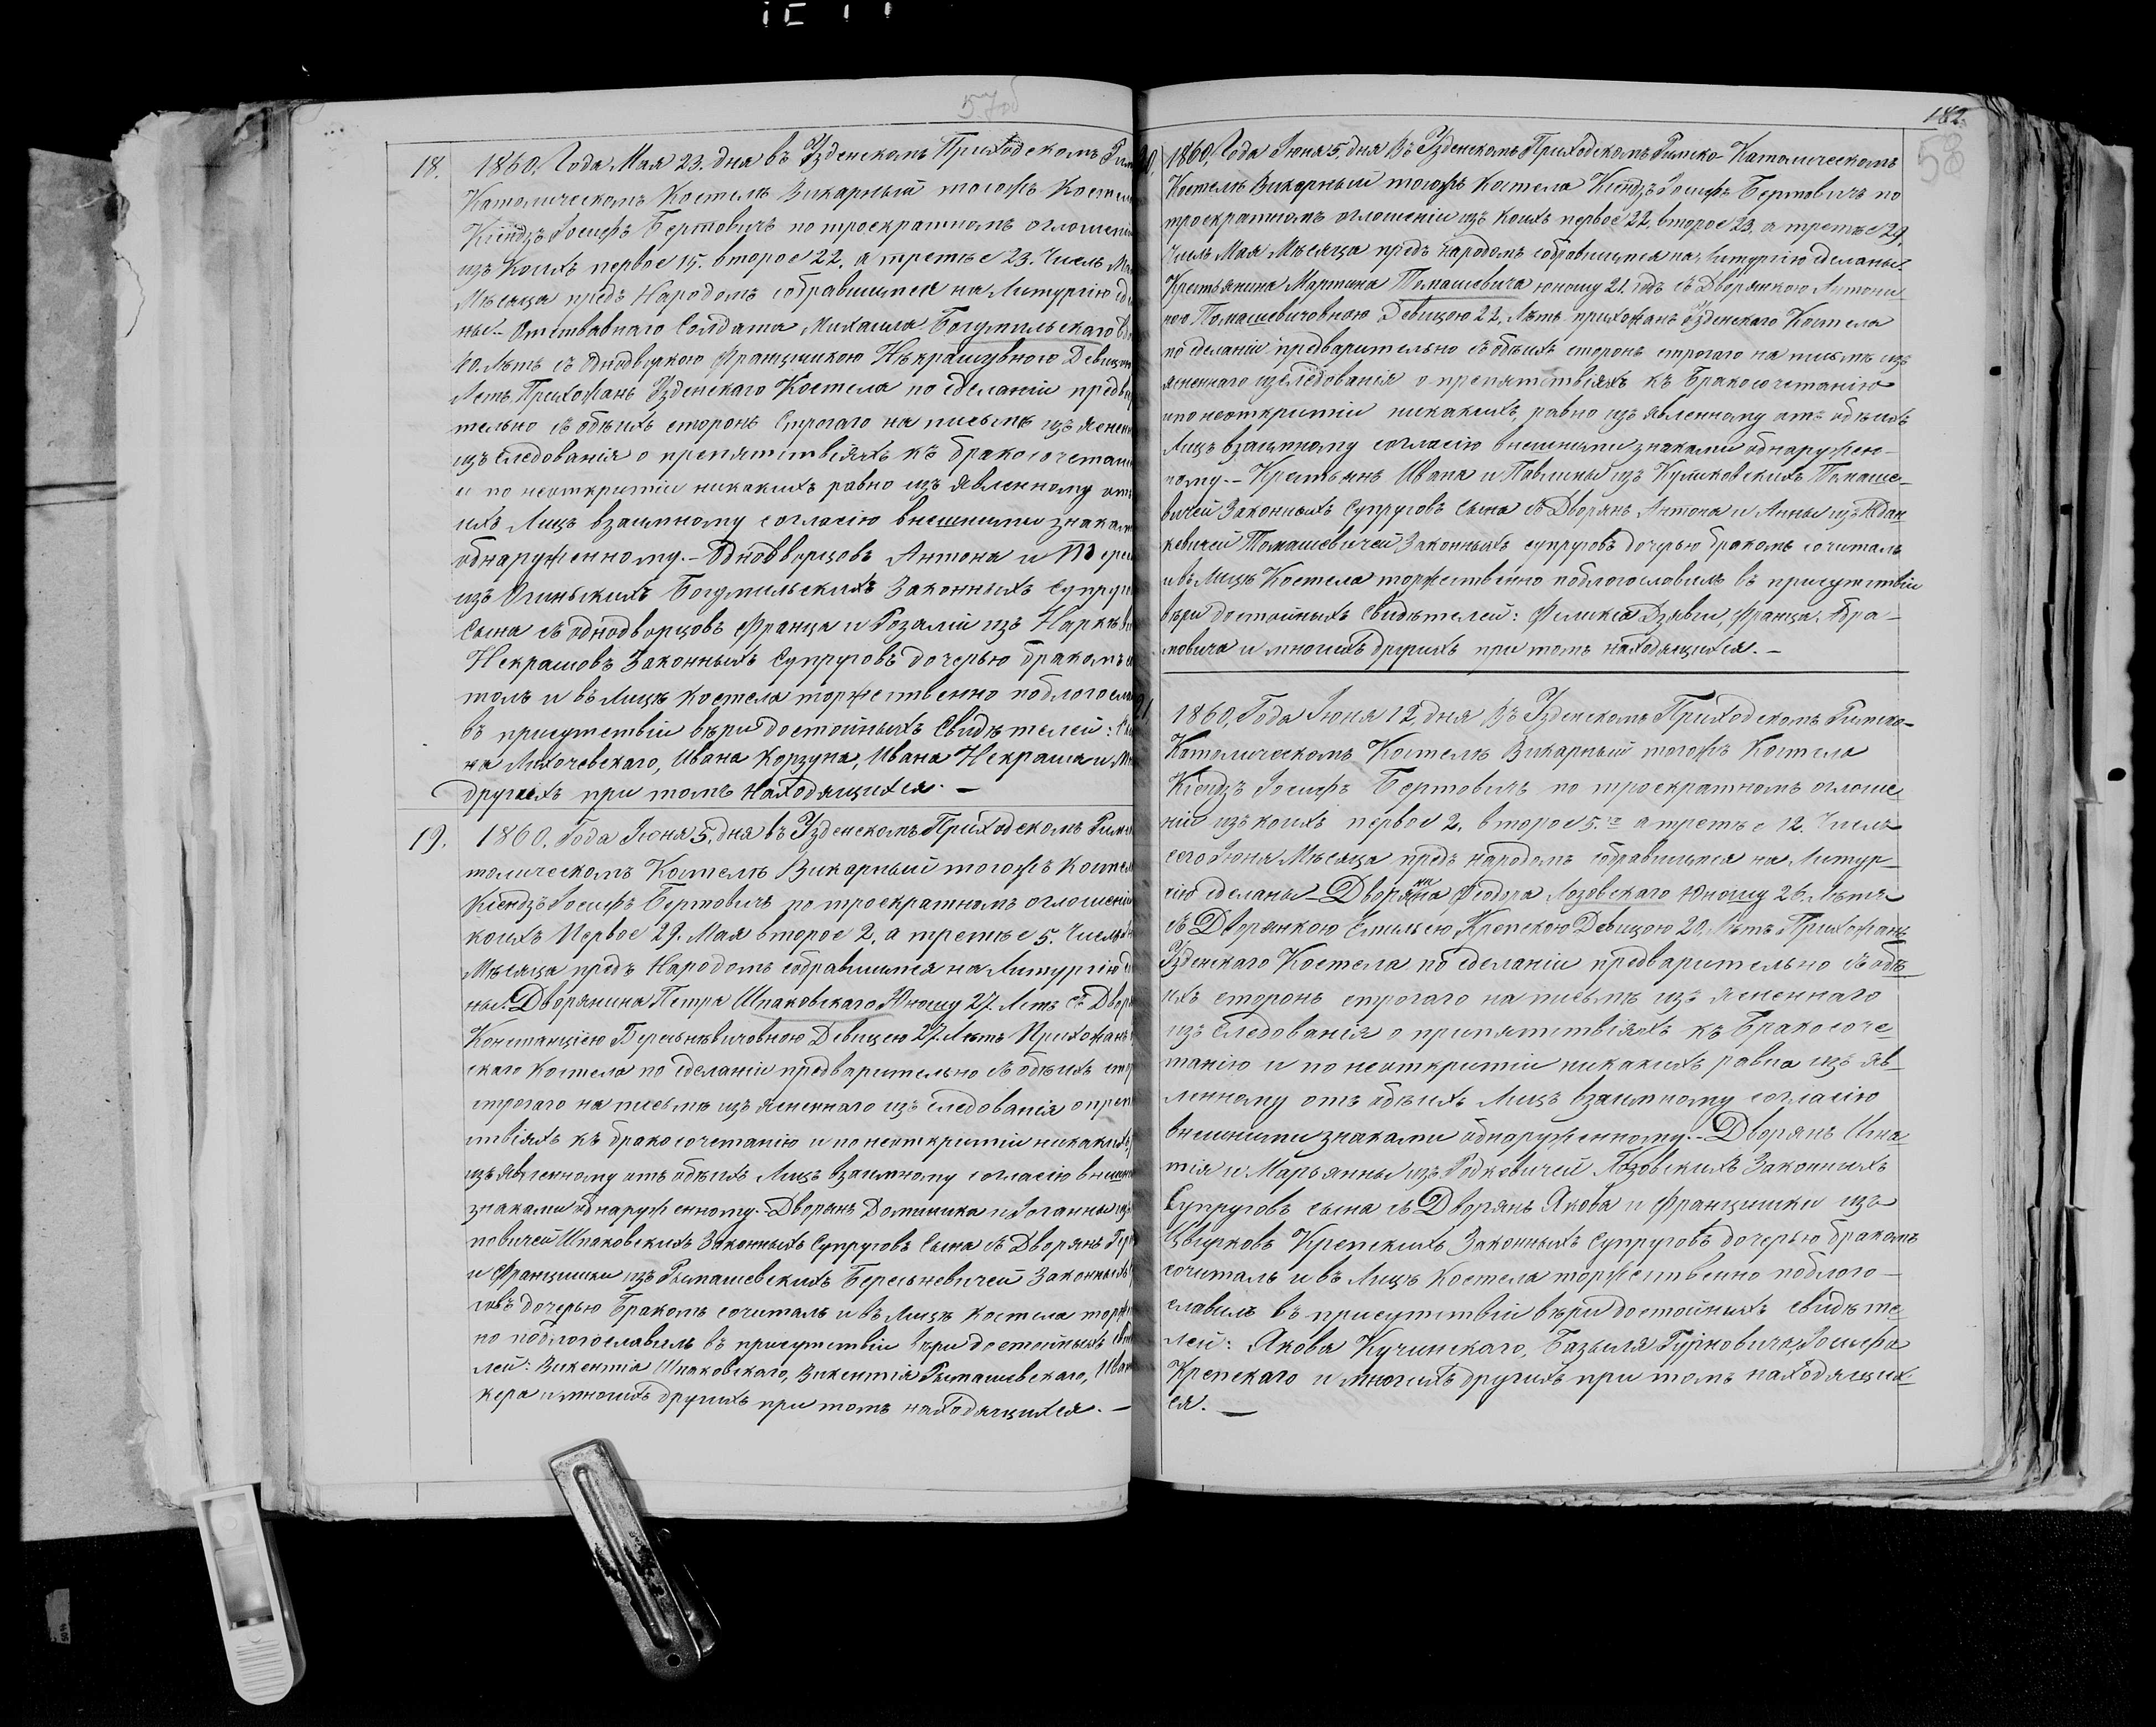 57об
18.
1860. Года Мая 23. дня въ Узденскомъ Приходскомъ
Католическомъ Костелѣ Викарный тогожъ
Ксіендзъ Іосифъ Бертовичъ по троекратномъ
изъ коихъ первое 15. второе 22. а третье 23. Числъ
Мѣсяца предъ Народомъ собравшимся на Литургію
ны. Отставнаго Солдата Михаила Богумильскаго
40. Лѣтъ съ Однодворкою Францишкою Некрашувною
Летъ Прихожанъ Узденскаго Костела по сделаніи
тельно съ обѣихъ сторонъ Строгаго на письмѣ
изъ следованія о препятствіяхъ къ
и по неоткрытіи никакихъ равно изъ явленному
ихъ Лицъ взаимному согласію внешними
обнаруженному. Однодворцовъ Антона и
изъ Огинскихъ Богумильскихъ Законныхъ
Сына съ однодворцовъ Франца и Розаліи изъ
Некрашовъ Законныхъ Супруговъ дочерью бракомъ
талъ и въ Лицѣ Костела торжественно
въ присутствіи вѣри достойныхъ Свидѣтелей:
на Лихочевскаго, Ивана Корзуна, Ивана Некраша и
другихъ при томъ находящихся. —
19.
1860. Года Іюня 5. дня въ Узденскомъ Приходскомъ
толическомъ Костелѣ Викарный тогожъ
Ксіендзъ Іосифъ Бертовичъ по троекратномъ
коихъ Первое 29. Мая второе 2. а третье 5.
Мѣсяца предъ Народомъ собравшимся на Литургію
ны. Дворянина Петра Шпаковскаго Юношу 27. Летъ съ
Констанціею Девицею 27. Летъ Прихожанъ
скаго Костела по сделаніи предварительно съ обѣихъ
строгаго на письмѣ изъ ясненнаго изъ следованія
ствіяхъ къ бракосочетанію и по неоткрытіи
изъ явленному отъ обѣихъ Лицъ взаимному согласію
знаками обнаруженному. Дворянъ Доминика и Іоганны
новичей Шпаковскихъ Законныхъ Супруговъ Сына съ Дворянъ
и Францишки изъ Рымашевскихъ Законныхъ
говъ дочерью Бракомъ сочиталъ и въ Лицѣ Костела
но поблогославилъ въ присутствіи вѣри достойныхъ
лей: Викентія Шпаковскаго, Викентія Рымашевскаго,
кера и многихъ другихъ при томъ находящихся. —
182.
58
1860. Года Іюня 5. дня Въ Узденскомъ Приходскомъ Римско-Католическомъ
Костелѣ Викарный тогожъ Костела Ксіендзъ Іосифъ Бертовичъ по
троекратномъ оглошеніи изъ коихъ первое 22. второе 23. а третье 29.
Числъ Мая Мѣсяца предъ народомъ собравшимся на Литургію сделаны.
Крестьянина Мартина Томашевича юношу 21. годъ съ Дворянкою Антони-
ною Томашевичовною Девицою 22. Летъ прихожанъ Узденскаго Костела
по сделаніи предварительно съ обѣихъ сторонъ строгаго на письмѣ изъ
ясненнаго изследованія о препятствіяхъ къ Бракосочетанію
и по неоткрытіи никакихъ, равно изъ явленному отъ обѣихъ
Лицъ взаимному согласію внешними знаками обнаружен-
ному. — Крестьянъ Ивана и Павлины изъ Куликовскихъ Томаше-
вичей Законныхъ Супруговъ Сына съ Дворянъ Антона и Анны изъ
кевичей Томашевичей Законныхъ супруговъ дочерью бракомъ сочиталъ
и въ Лицѣ Костела торжественно поблогословилъ въ присутствіи
вѣри достойныхъ Свидѣтелей: Феликса Франца Абра-
мовича и многихъ другихъ при томъ находящихся. —
1860. Года Іюня 12. дня Въ Узденскомъ Приходскомъ Римско-
Католическомъ Костелѣ Викарный тогожъ Костела
Ксіендзъ Іосифъ Бертовичъ по троекратномъ оглоше-
ніи изъ коихъ первое 2. второе 5. а третье 12. Числъ
сего Іюня Мѣсяца предъ народомъ собравшимся на Литур-
гію сделаны — Дворянина Феодора Лозовскаго Юношу 26. Летъ
съ Дворянкою Емилею Крепскою Девицою 20. Летъ Прихожанъ
Узденскаго Костела по сделаніи предварительно съ обѣ-
ихъ сторонъ строгаго на письмѣ изъ ясненнаго
изъ следованія о припятствіяхъ къ Бракосоче-
танію и по неоткрытіи никакихъ равна изъ яв-
ленному отъ обѣихъ Лицъ взаимному согласію
внешними знаками обнаруженному. — Дворянъ Игна-
тія и Марьянны изъ Родкевичей Лозовскихъ Законныхъ
Супруговъ сына съ Дворянъ Якова и Францишки изъ
Цвирковъ Крепскихъ Законныхъ Супруговъ дочерью бракомъ
сочиталъ и въ Лицѣ Костела торжественно поблого-
славилъ въ присутствіи вѣри достойныхъ свидѣте-
лей: Якова Кучинскаго, Базыля Гурновича, Іосифа
Крепскаго и многихъ другихъ при томъ находящих-
ся. —